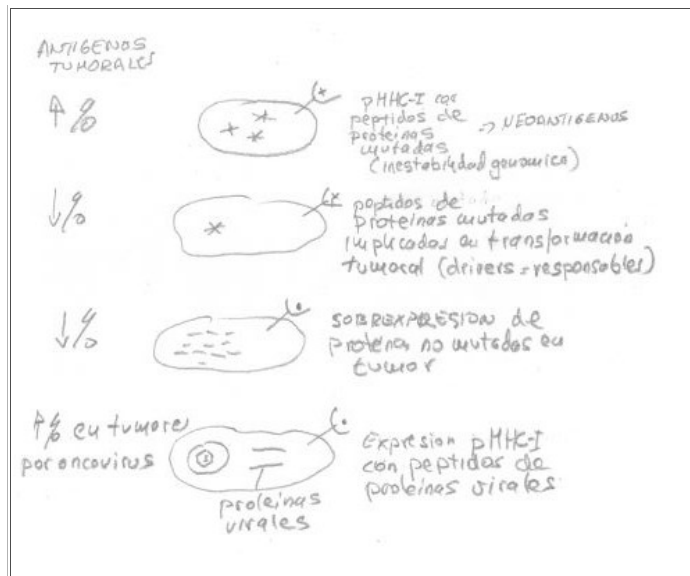 ANTIGENOS
TUMORALES
↑ %
pMHC-I con
peptidos de
proteinas
mutadas
(inestabilidad genomica)
→ NEOANTIGENOS
↓ %
peptidos de
proteinas mutadas
implicadas en transformación
tumoral (drivers = responsables)
↓ %
SOBREXPRESION de
proteina no mutados en
tumor
↑ % en tumores
por oncovirus
Expresion pMHC-I
con peptidos de
proteinas virales
proteinas
virales